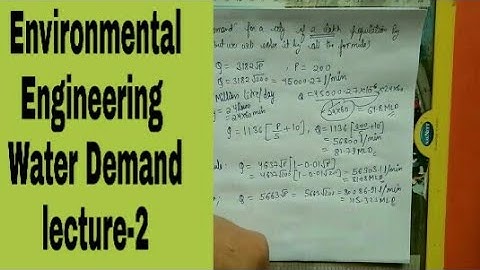 Environmental
Engineering
Water Demand
lecture-2
demand for a city of 2 lakh population by
but we will solve it by all the formulas
Q = 3182√P , P = 200
Q = 3182√200 = 45000.27 l/min
Million litre/day
= 24 hours
= 24x60 min
24x60
= 64.8 MLD
Q = 1136 [P/5 + 10], Q = 1136 [200/5 + 10]
= 56800 l/min
= 81.79 MLD
Q = 4637√P [1-0.01√P]
= 4637√200 [1-0.01√200] = 56303.1 l/min
Q = 5663√P = 5663√200 = 80086.91 l/min
= 115.325 MLD